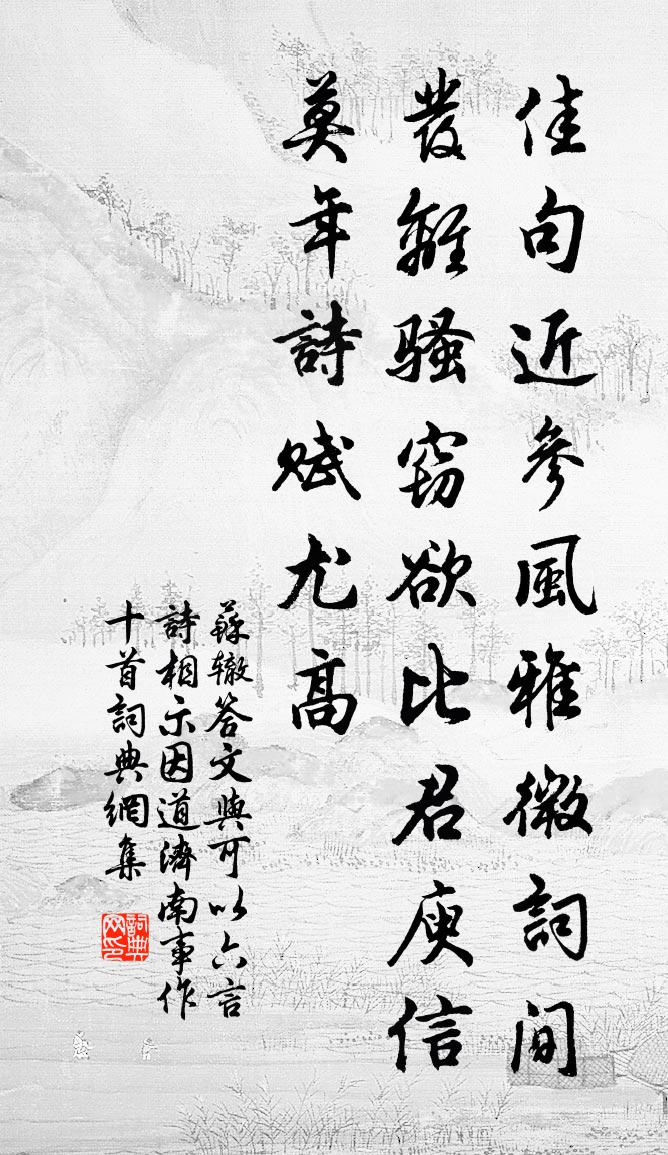 佳句近參風雅微詞間
發離騷窃欲比君庾信
莫年詩赋尤高
蘇辙答文與可以六言
詩相示因道濟南事作
十首詞典網集
詞典网印